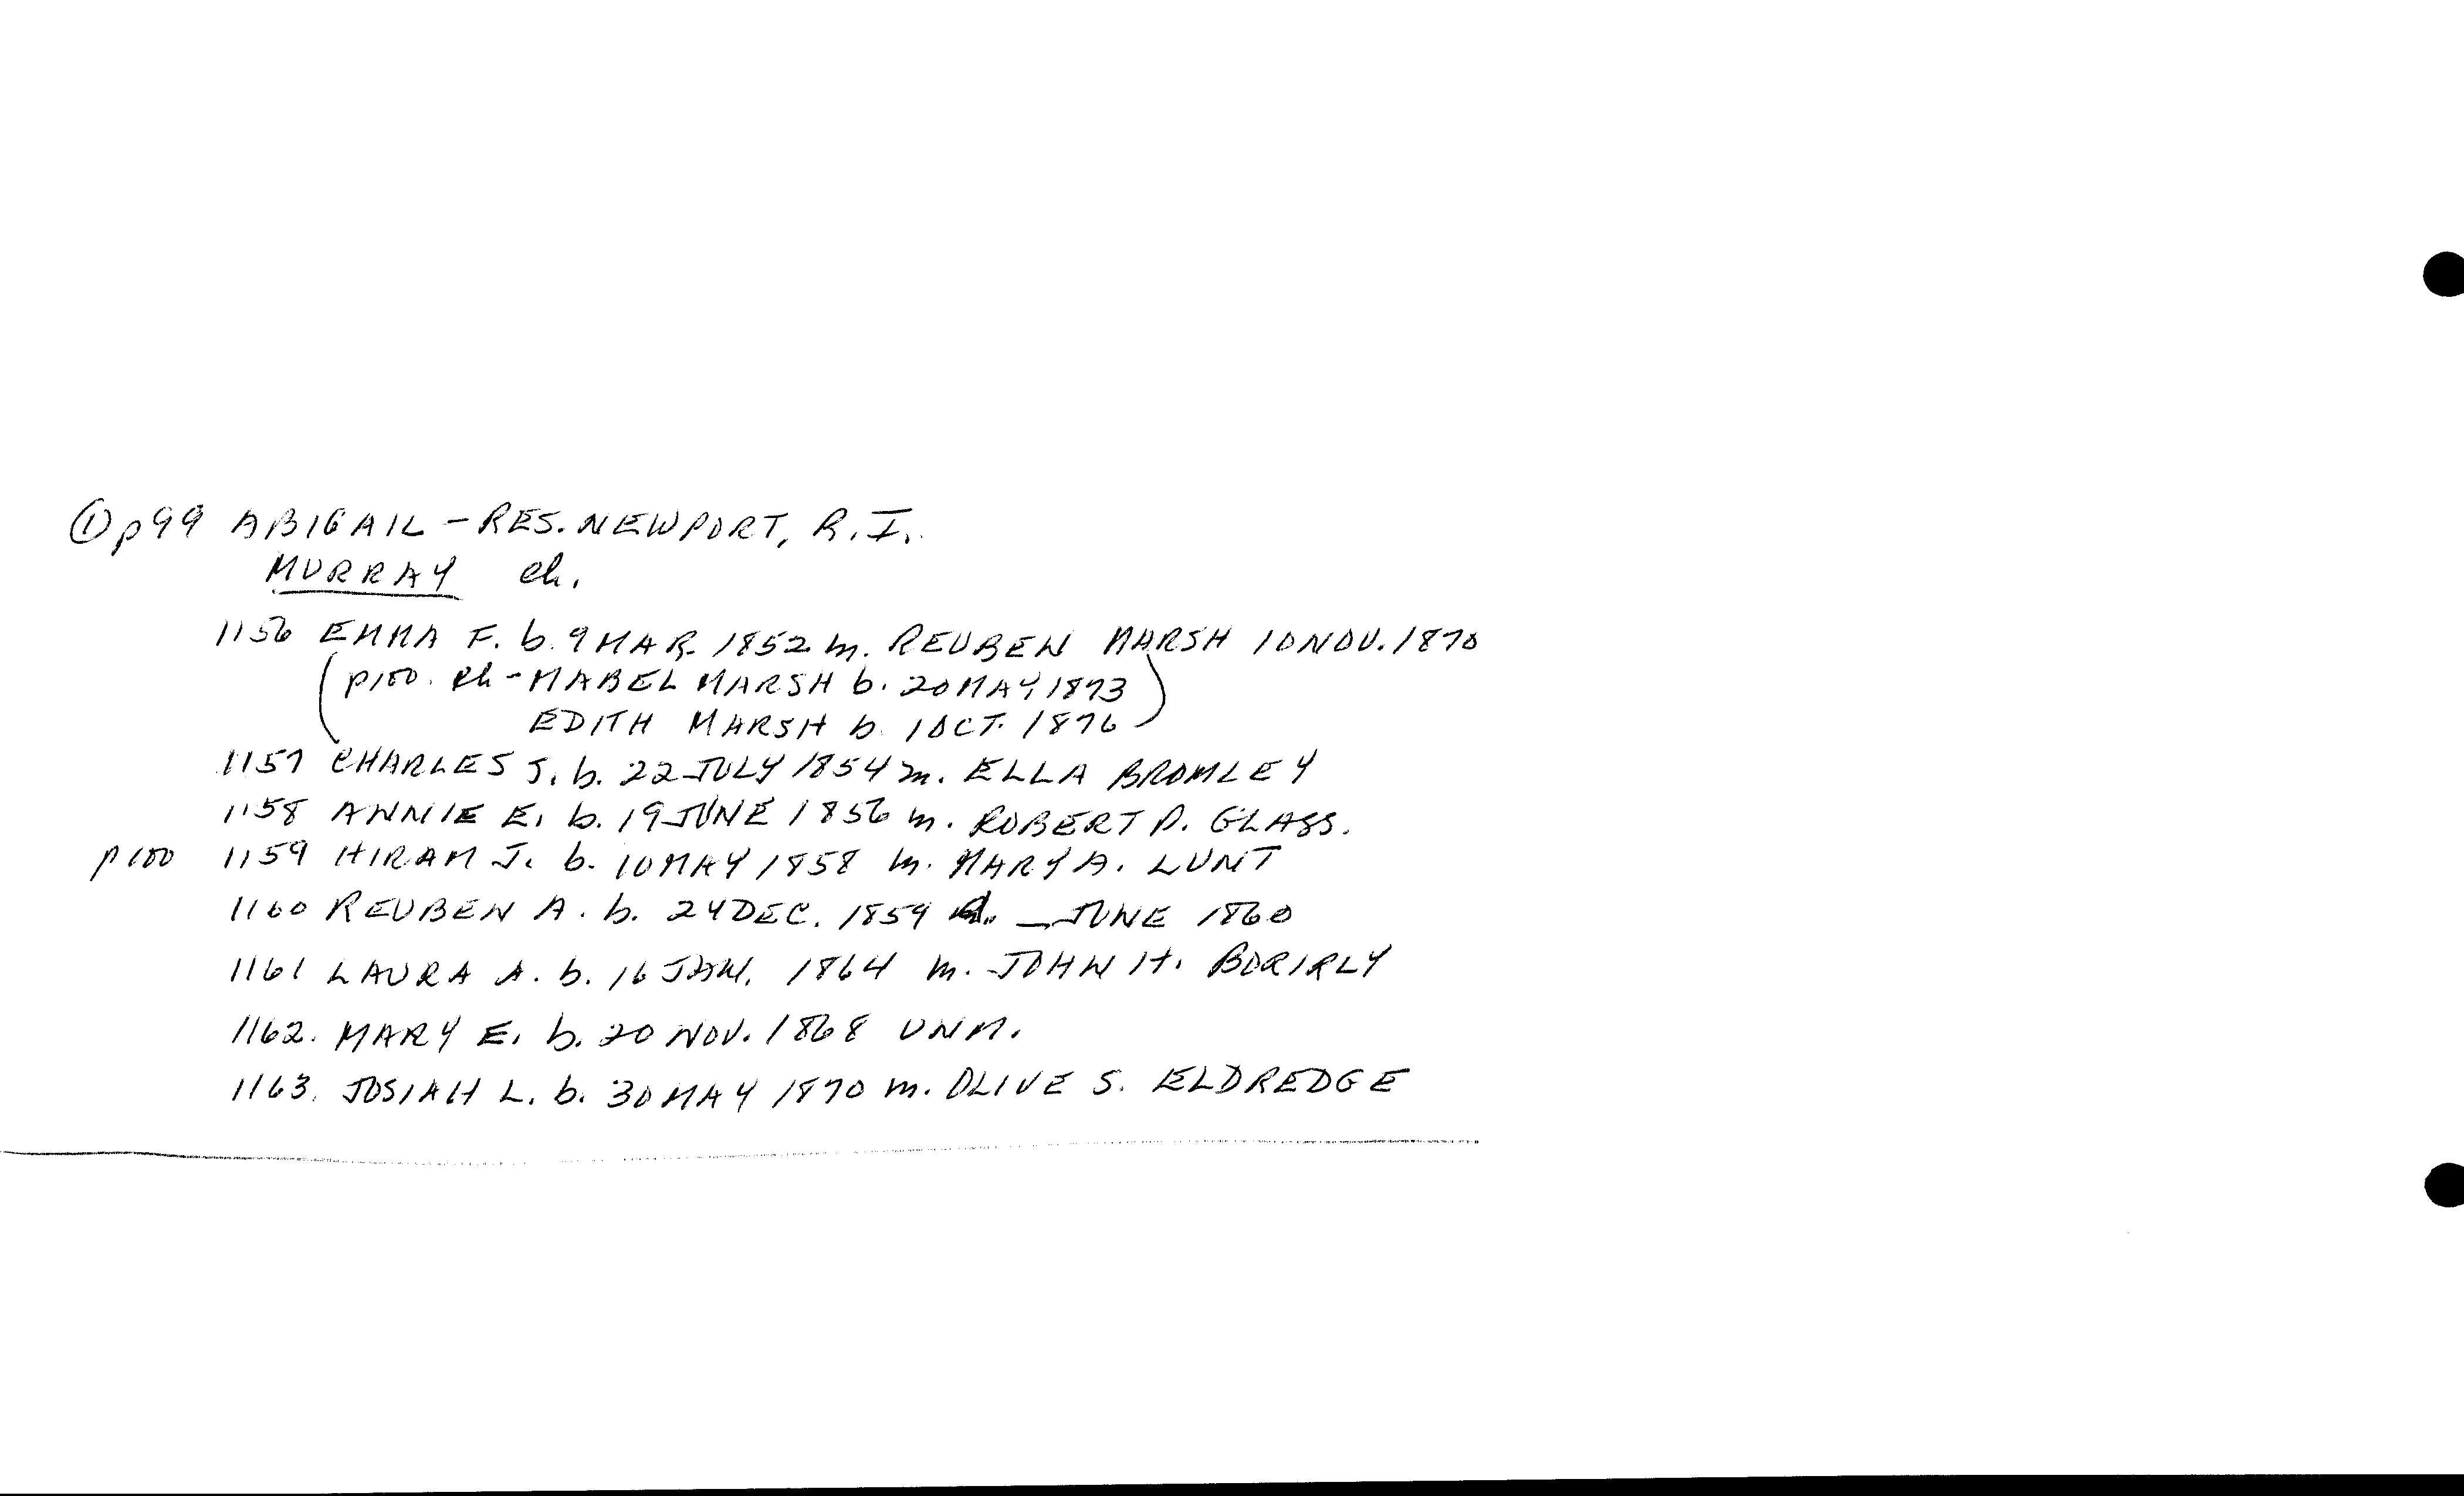 ① p99 ABIGAIL - RES. NEWPORT, R.I.
MURRAY ch.
1156 EMMA F. b. 9 MAR. 1852 m. REUBEN MARSH 10 NOV. 1870
(p100. ch - MABEL MARSH b. 20 MAY 1873
EDITH MARSH b. 1 OCT. 1876)
1157 CHARLES J. b. 22 JULY 1854 m. ELLA BROMLEY
1158 ANNIE E. b. 19 JUNE 1856 m. ROBERT P. GLASS.
p100 1159 HIRAM J. b. 10 MAY 1858 m. MARY A. LUNT
1160 REUBEN A. b. 24 DEC. 1859 d. _ JUNE 1860
1161 LAURA A. b. 16 JAN. 1864 m. JOHN H. BORIRLY
1162. MARY E. b. 20 NOV. 1868 UNM.
1163. JOSIAH L. b. 30 MAY 1870 m. OLIVE S. ELDREDGE